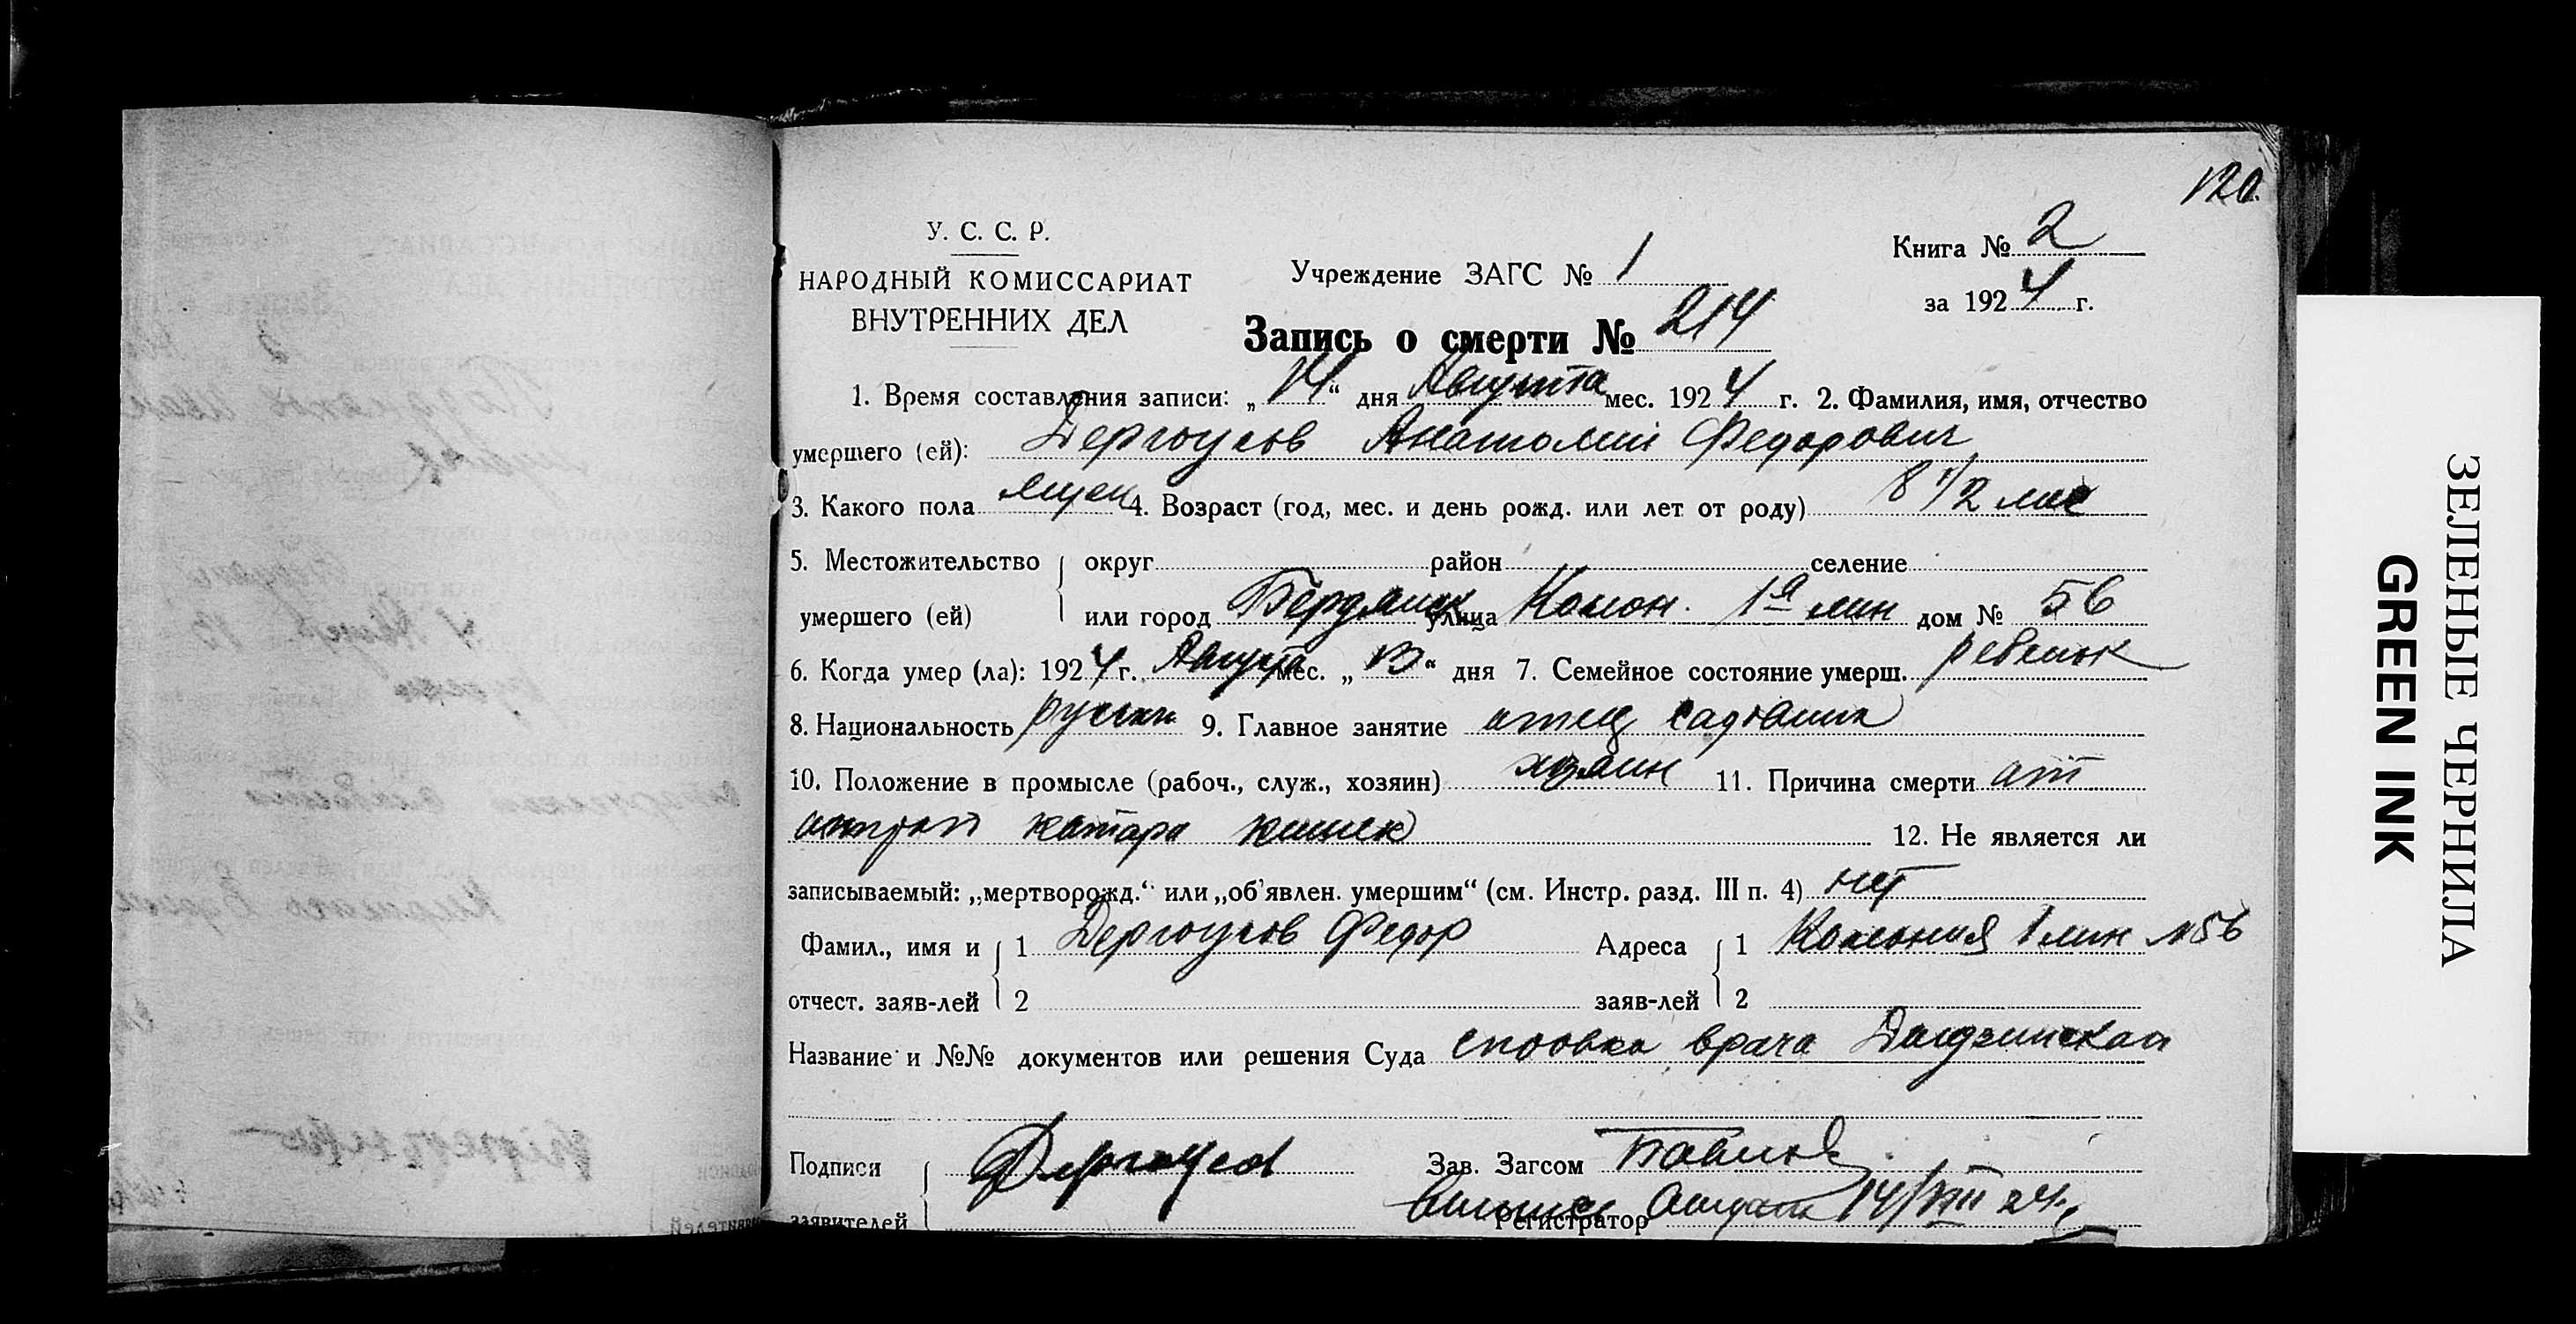 120.
У. С. С. Р.
НАРОДНЫЙ КОМИССАРИАТ
ВНУТРЕННИХ ДЕЛ
Учреждение ЗАГС № 1
Книга № 2
за 1924 г.
Запись о смерти № 214
1. Время составления записи: „14“ дня Августа мес. 1924 г. 2. Фамилия, имя, отчество
умершего (ей): Дергоусов Анатолий Федорович
3. Какого пола 4. Возраст (год, мес. и день рожд. или лет от роду) 8 1/2 мес
5. Местожительство умершего (ей) округ район селение
или город Бердянск улица Колон. 1ª лин дом № 56
6. Когда умер (ла): 1924 г. Августа мес. „13“ дня 7. Семейное состояние умерш. ребенок
8. Национальность русск 9. Главное занятие отец садовник
10. Положение в промысле (рабоч., служ., хозяин) хозяин 11. Причина смерти от
острой катара кишек 12. Не является ли
записываемый: „мертворожд.“ или „об'явлен. умершим“ (см. Инстр. разд. III п. 4) нет
Фамил., имя и отчест. заяв-лей 1 Дергоусов Федор Адреса заяв-лей 1 Колония 1 лин №56
2 2
Название и №№ документов или решения Суда справка врача
Подписи заявителей Дергоусов Зав. Загсом
Регистратор 14/VIII 24г.
ЗЕЛЕНЫЕ ЧЕРНИЛА
GREEN INK